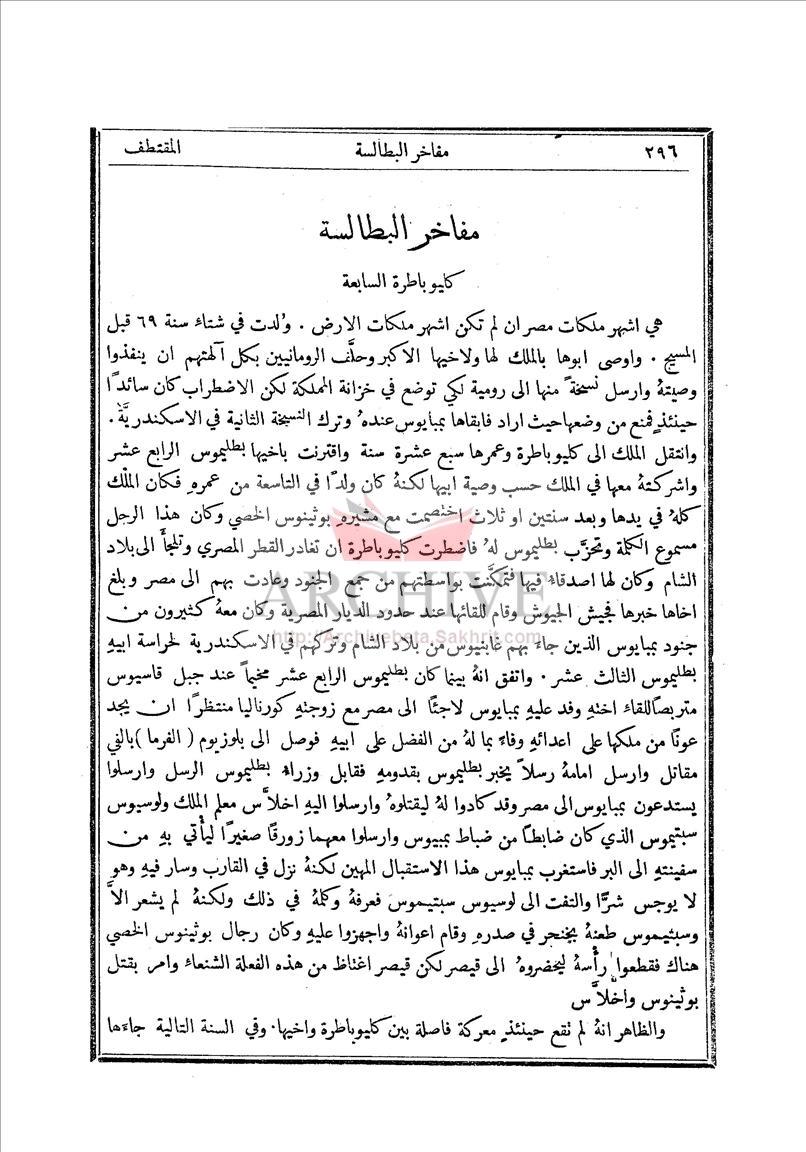 ٢٩٦ مفاخر البطالسة المقتطف
مفاخر البطالسة
كليوباطرة السابعة
هي اشهر ملكات مصر ان لم تكن اشهر ملكات الارض . وُلدت في شتاء سنة ٦٩ قبل
المسيح . واوصى ابوها بالملك لها ولاخيها الاكبر وحلَّف الرومانيين بكل آلهتهم ان ينفذوا
وصيتهُ وارسل نسخةً منها الى رومية لكي توضع في خزانة المملكة لكن الاضطراب كان سائدًا
حينئذٍ فمنع من وضعها حيث اراد فابقاها بمبايوس عندهُ وترك النسخة الثانية في الاسكندريَّة .
وانتقل الملك الى كليوباطرة وعمرها سبع عشرة سنة واقترنت باخيها بطليموس الرابع عشر
واشركتهُ معها في الملك حسب وصية ابيها لكنهُ كان ولدًا في التاسعة من عمرهِ فكان الملك
كلهُ في يدها وبعد سنتين او ثلاث اختصمت مع مشيرهِ بوثينوس الخصي وكان هذا الرجل
مسموع الكلمة وتحزَّب بطليموس لهُ فاضطرت كليوباطرة ان تغادر القطر المصري وتلجأَ الى بلاد
الشام وكان لها اصدقاءُ فيها فتمكَّنت بواسطتهم من جمع الجنود وعادت بهم الى مصر وبلغ
اخاها خبرها فجيش الجيوش وقام للقائها عند حدود الديار المصرية وكان معهُ كثيرون من
جنود بمبايوس الذين جاءَ بهم غابنيوس من بلاد الشام وتركهم في الاسكندرية لحراسة ابيهِ
بطليموس الثالث عشر . واتفق انهُ بينما كان بطليموس الرابع عشر مخيماً عند جبل قاسيوس
متربصاً للقاء اختهِ وفد عليهِ بمبايوس لاجئًا الى مصر مع زوجتهِ كورناليا منتظرًا ان يجد
عونًا من ملكها على اعدائهِ وفاءً بما لهُ من الفضل على ابيهِ فوصل الى بلوزيوم ( الفرما ) بالفي
مقاتل وارسل امامهُ رسلاً يخبر بطليموس بقدومهِ فقابل وزراءُ بطليموس الرسل وارسلوا
يستدعون بمبايوس الى مصر وقد كادوا لهُ ليقتلوهُ وارسلوا اليهِ اخلاَّس معلم الملك ولوسيوس
سبتيموس الذي كان ضابطًا من ضباط بمبيوس وارسلوا معهما زورقًا صغيرًا ليأْتي بهِ من
سفينتهِ الى البر فاستغرب بمبايوس هذا الاستقبال المهين لكنهُ نزل في القارب وسار فيهِ وهو
لا يوجس شرًّا والتفت الى لوسيوس سبتيموس فعرفهُ وكلمهُ في ذلك ولكنهُ لم يشعر الاَّ
وسبثيموس طعنهُ بخنجر في صدرهِ وقام اعوانهُ واجهزوا عليهِ وكان رجال بوثينوس الخصي
هناك فقطعوا رأْسهُ ليحضروهُ الى قيصر لكن قيصر اغتاظ من هذه الفعلة الشنعاء وامر بقتل
بوثينوس واخلاَّس
والظاهر انهُ لم تقع حينئذٍ معركة فاصلة بين كليوباطرة واخيها . وفي السنة التالية جاءَها
ARCHIVE
http://Archivebeta.Sakhrit.com